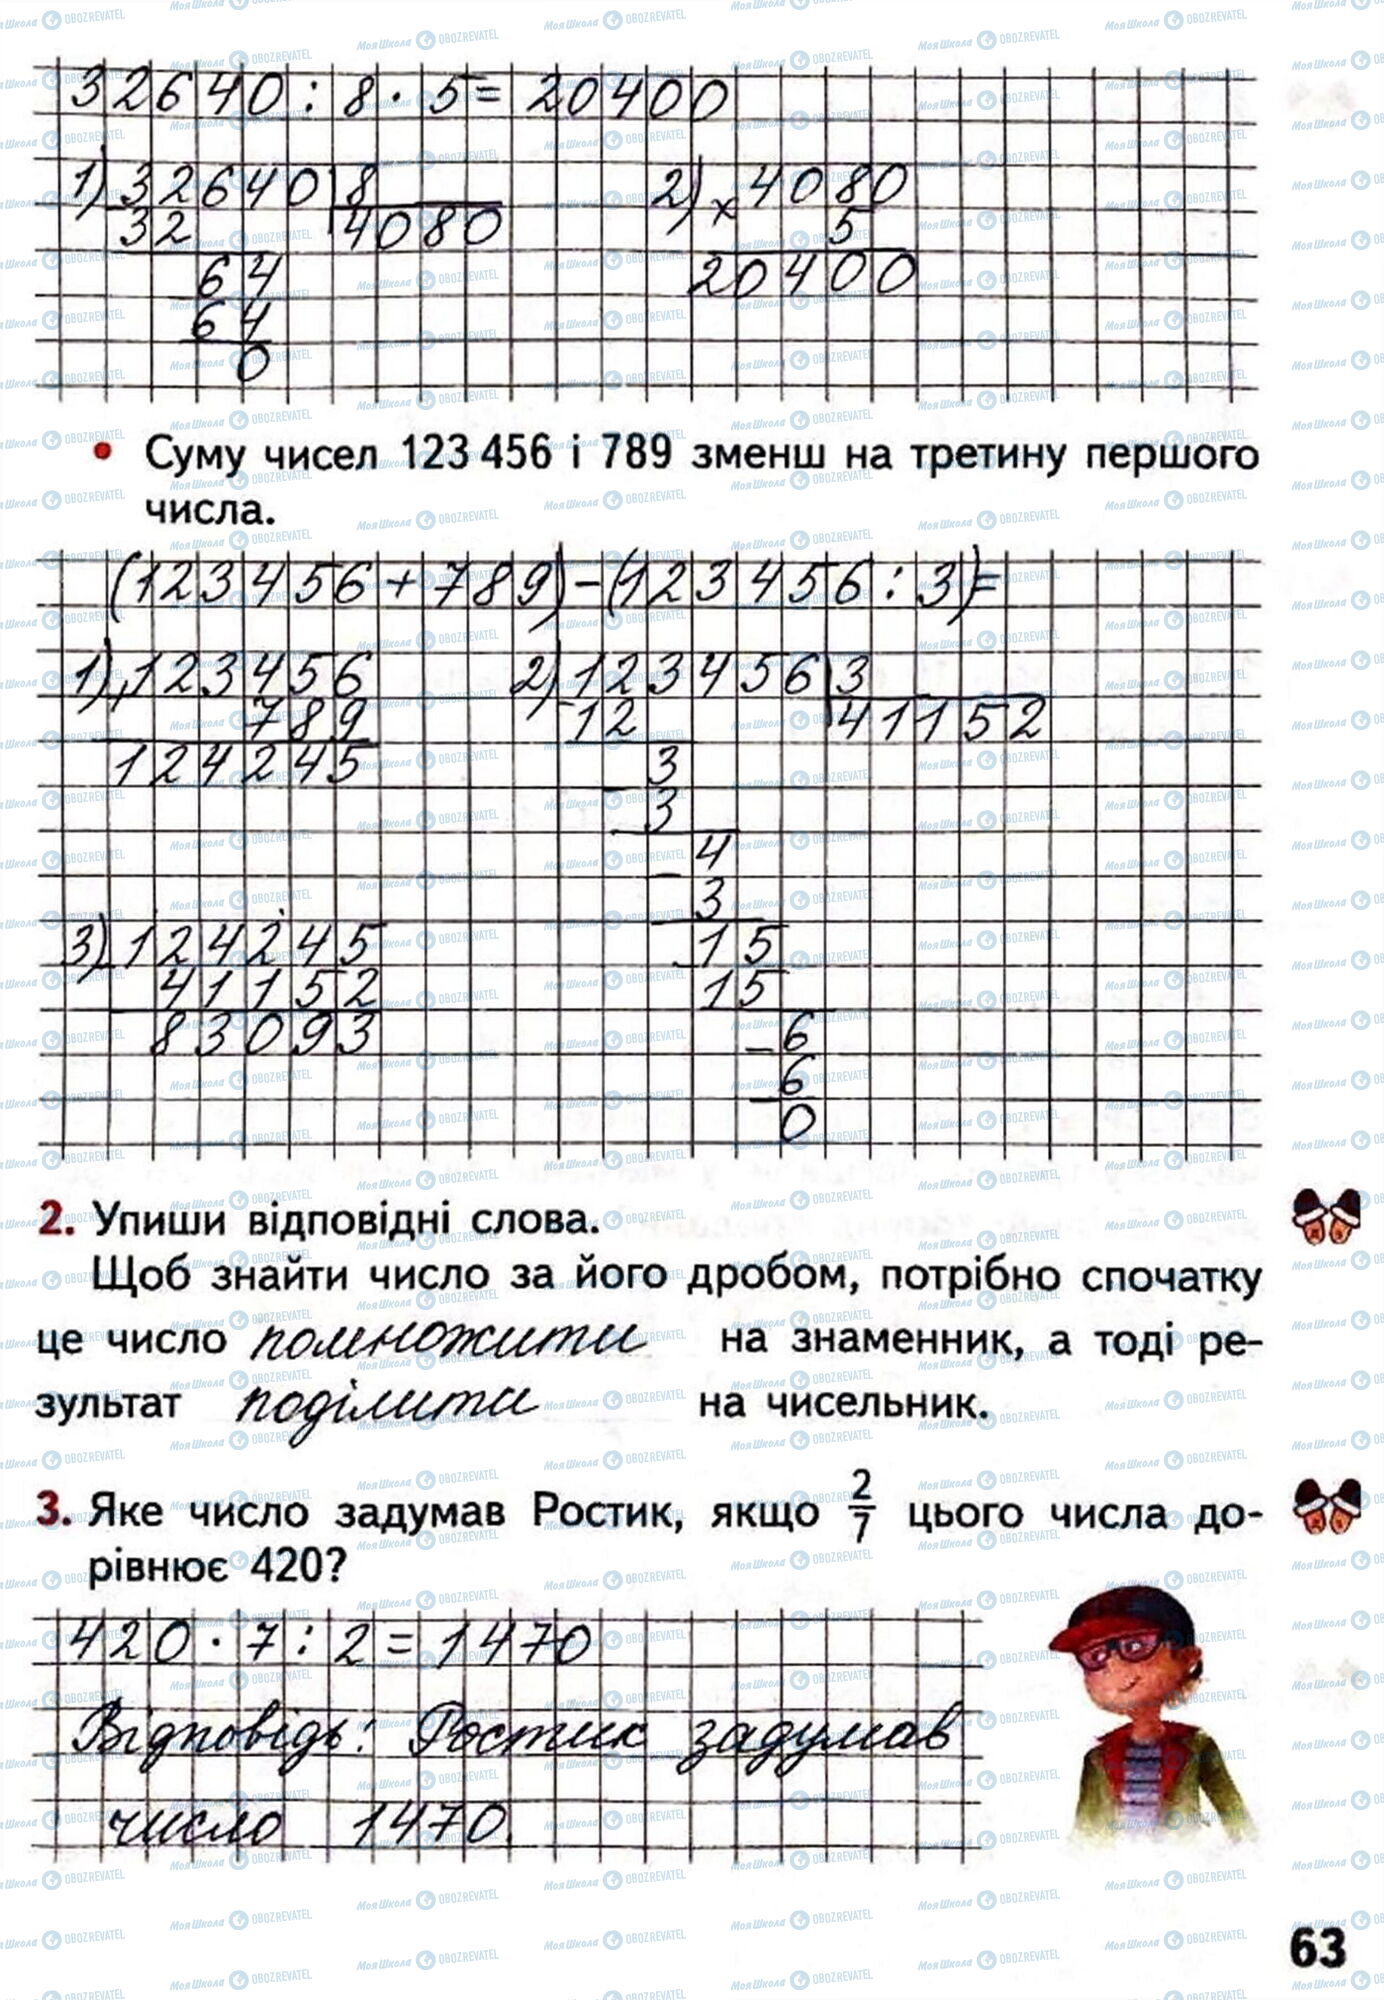 32640 : 8 · 5 = 20400
1) 32640 8 2) × 4080
32 4080 5
64 20400
64
0
• Суму чисел 123 456 і 789 зменш на третину першого
числа.
(123456 + 789) – (123456 : 3) =
1) + 123456 2) 123456 3
789 12 41152
124245 3
3
4
3
3) 124245 15
41152 15
83093 6
6
0
2. Упиши відповідні слова.
Щоб знайти число за його дробом, потрібно спочатку
це число помножити на знаменник, а тоді ре-
зультат поділити на чисельник.
3. Яке число задумав Ростик, якщо 2/7 цього числа до-
рівнює 420?
420 · 7 : 2 = 1470
Відповідь: Ростик задумав
число 1470.
63
МояШкола OBOZREVATEL